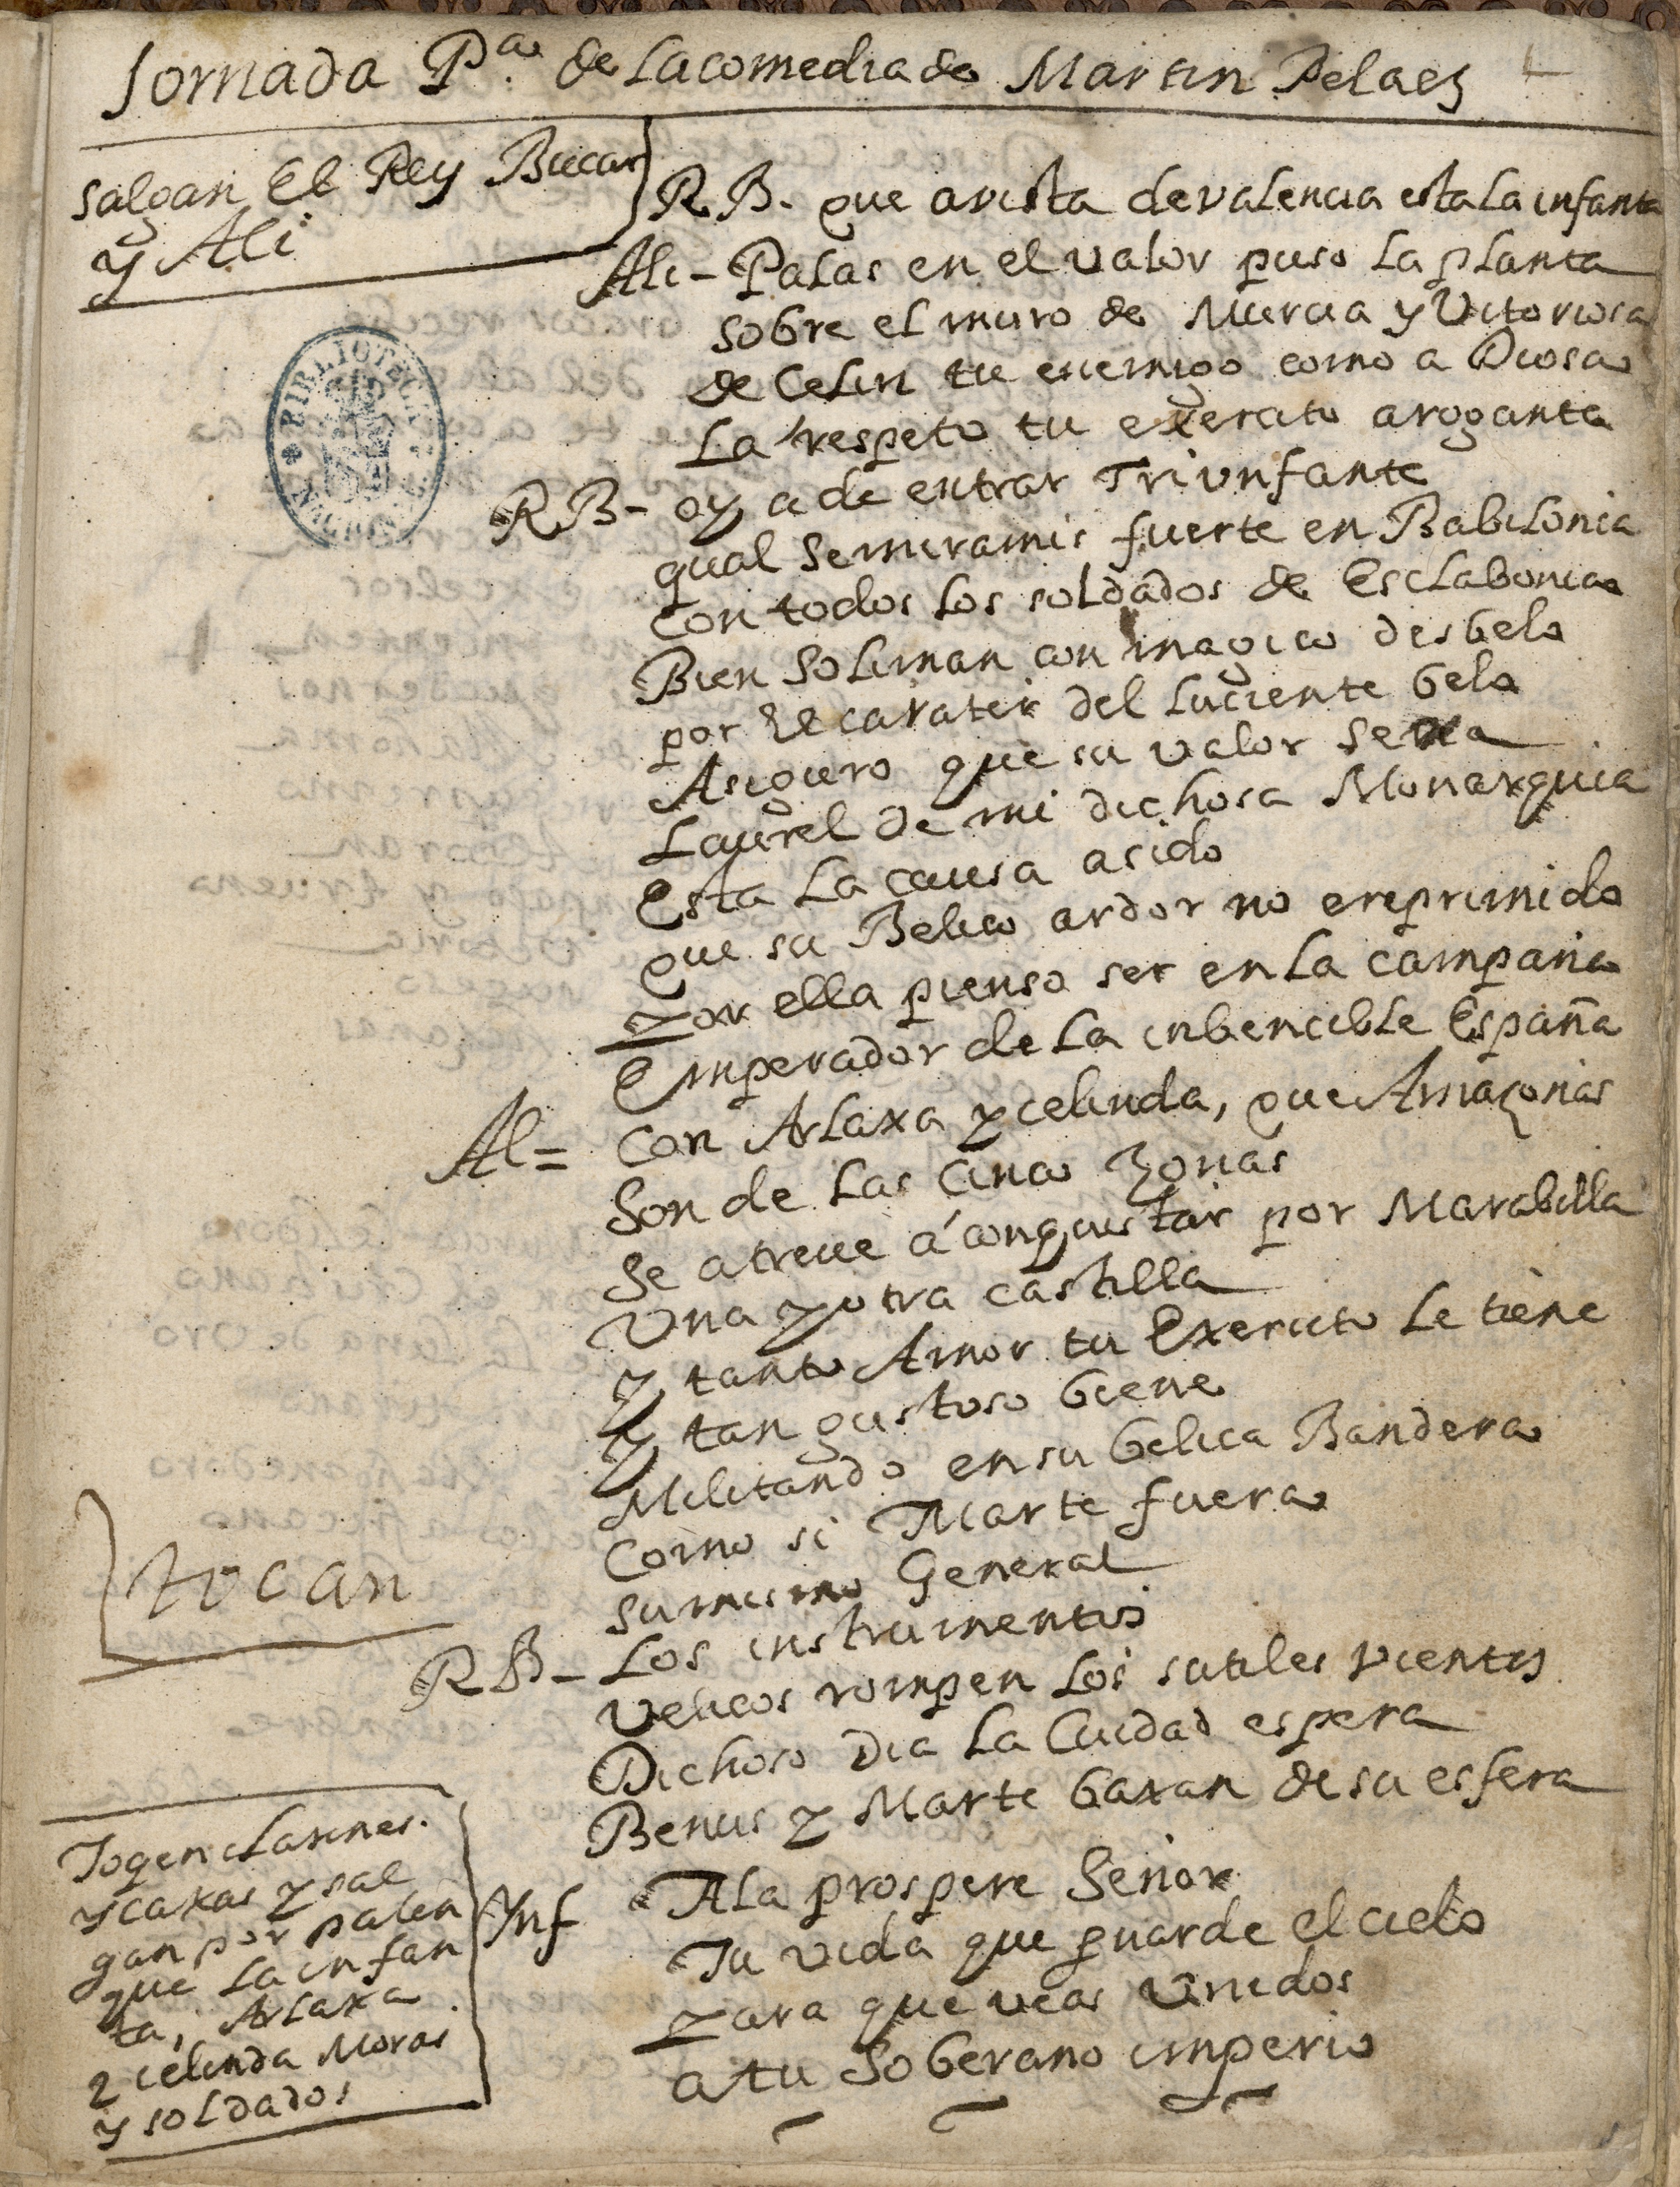 Jornada P.a de La comedia de Martin Pelaez
salgan El Rey Bucar
y Ali
R.B. que a vista de valencia esta La infanta
Ali - Palas en el valor puso La planta
sobre el muro de Murcia y Vitoriosa
de Celin tu enemigo como a Diosa
La respeto tu exercito arogante
R.B - oy a de entrar Triunfante
qual Semiramis fuerte en Babilonia
con todos Los soldados de Esclabonia
Bien Soliman con magico desbelo
por el carater del Luciente belo
Aseguro que su valor seria
Laurel de mi dichosa Monarquia
Esta La causa a sido
que su Belico ardor no e reprimido
por ella pienso ser en La campaña
Emperador de La inbencible España
Al = Con Arlaxa y celinda, que Amazonas
Son de Las cinco zonas
Se atreue á conquistar por Marabilla
Una y otra castilla
y tanto Amor tu Exercito Le tiene
y tan gustoso biene
Militando en su belica Bandera
Como si Marte fuera
su mismo General
tocan
R B - Los instrumentos
velicos rompen Los sutiles vientos
Dichoso Dia La Ciudad espera
Benus y Marte baxan de su esfera
Toqen clarines.
y caxas y sal
gan por palen
que La infan
ta, Arlaxa
y celinda Moras
y soldados
Ynf Ala prospere Señor
Tu vida que guarde el cielo
para que veas Unidos
a tu Soberano imperio
BIBLIOTECA